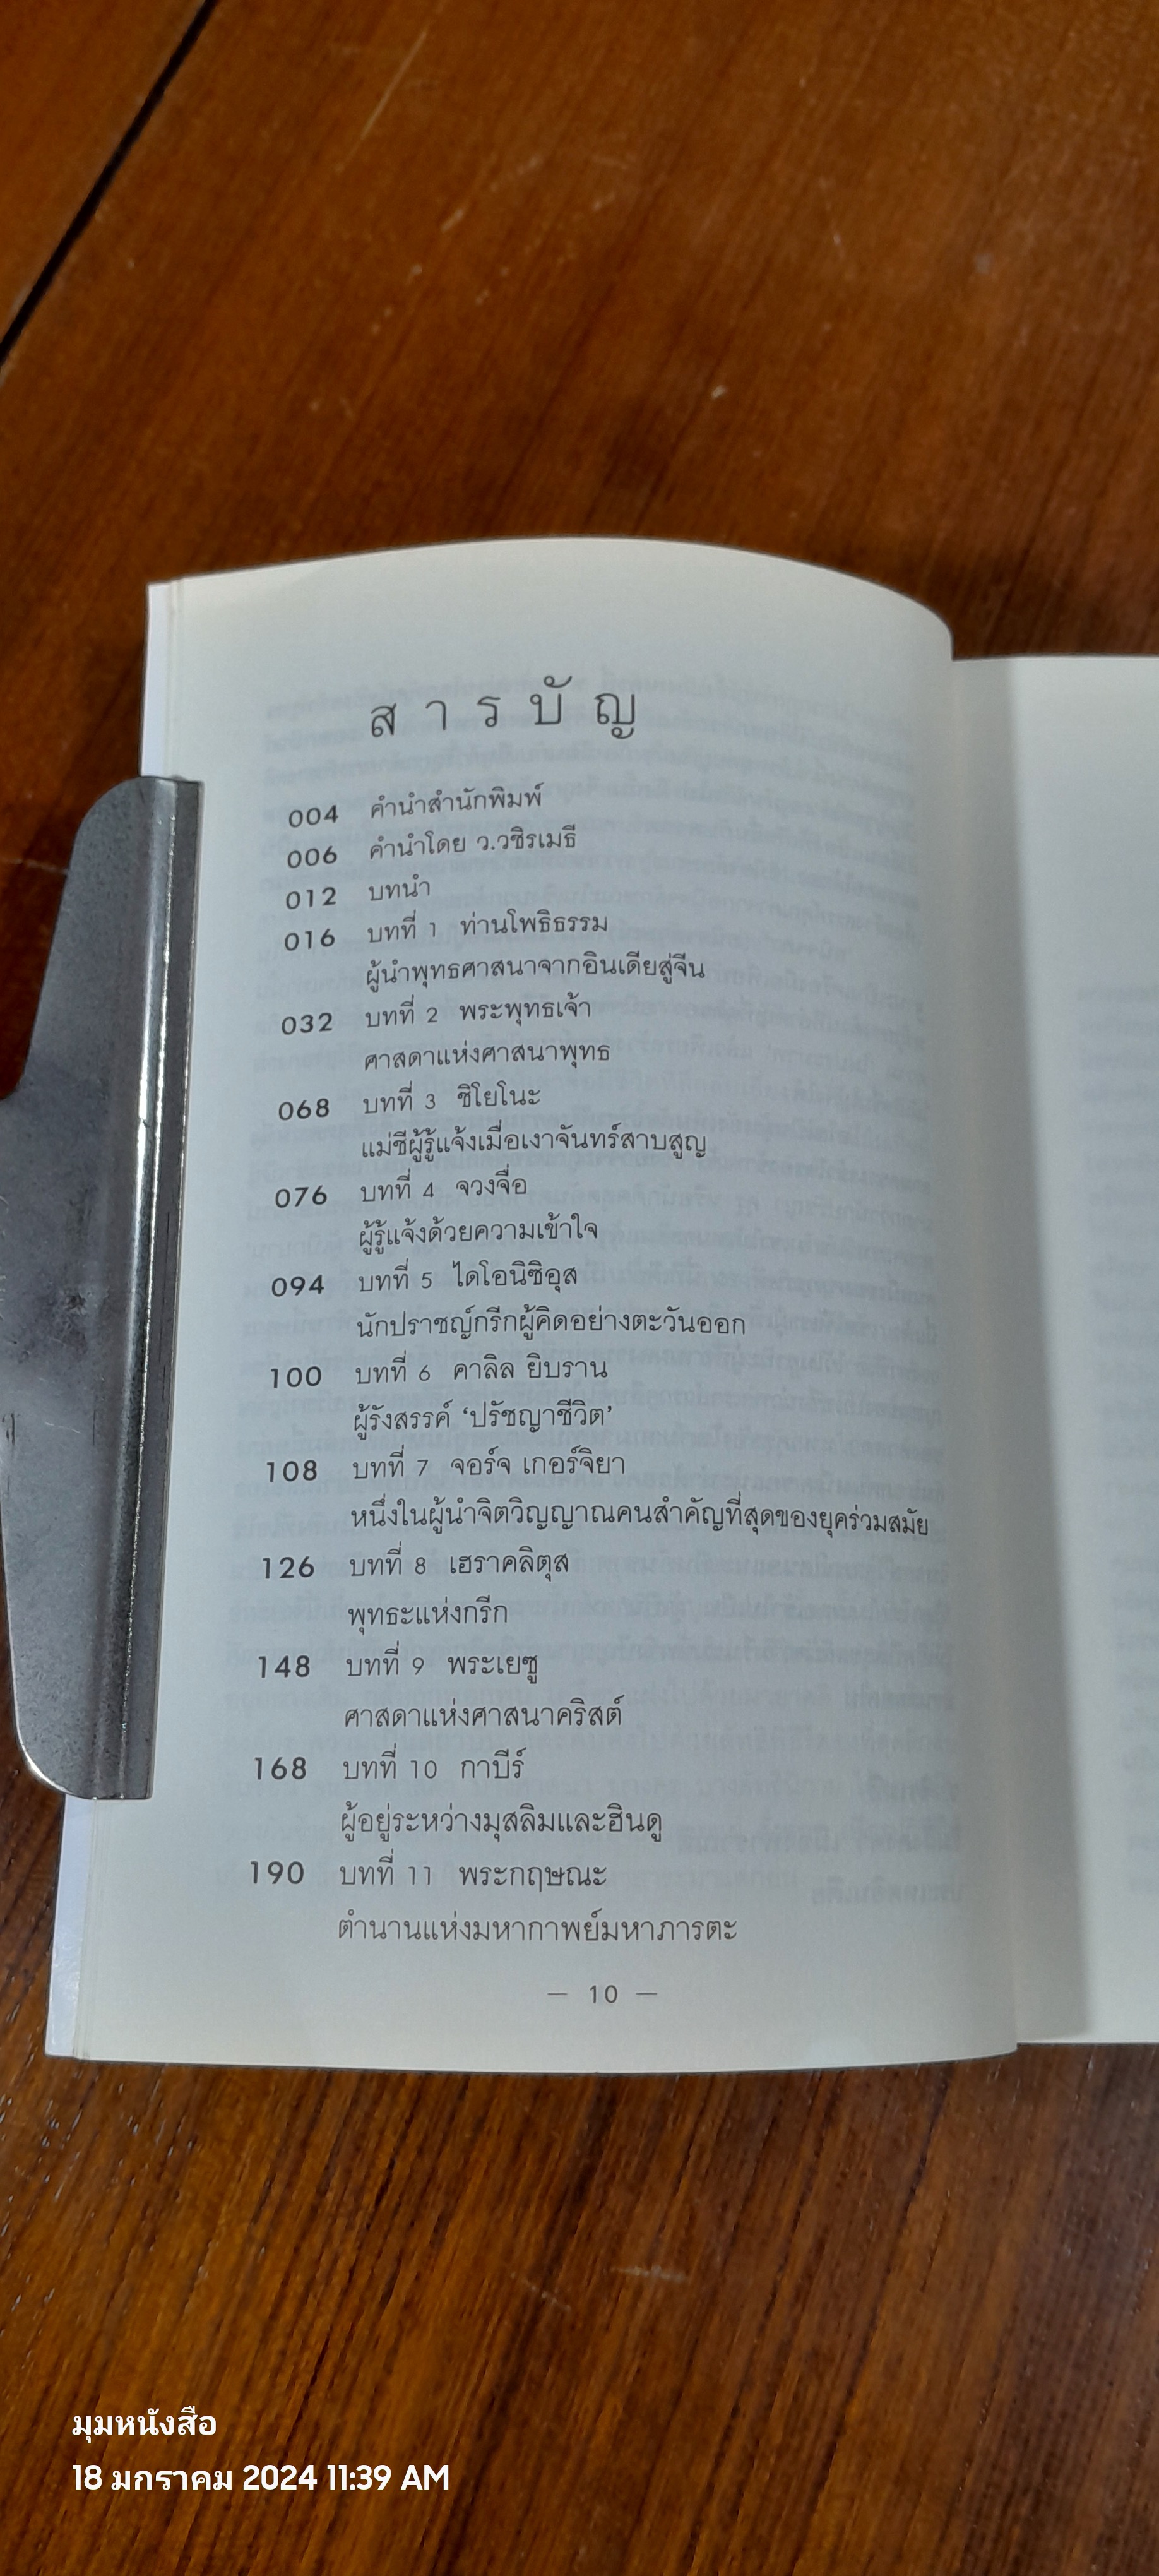 สารบัญ
004 คำนำสำนักพิมพ์
006 คำนำโดย ว.วชิรเมธี
012 บทนำ
016 บทที่ 1 ท่านโพธิธรรม
ผู้นำพุทธศาสนาจากอินเดียสู่จีน
032 บทที่ 2 พระพุทธเจ้า
ศาสดาแห่งศาสนาพุทธ
068 บทที่ 3 ชิโยโนะ
แม่ชีผู้รู้แจ้งเมื่อเงาจันทร์สาบสูญ
076 บทที่ 4 จวงจื่อ
ผู้รู้แจ้งด้วยความเข้าใจ
094 บทที่ 5 ไดโอนิซิอุส
นักปราชญ์กรีกผู้คิดอย่างตะวันออก
100 บทที่ 6 คาลิล ยิบราน
ผู้รังสรรค์ ‘ปรัชญาชีวิต’
108 บทที่ 7 จอร์จ เกอร์จิยา
หนึ่งในผู้นำจิตวิญญาณคนสำคัญที่สุดของยุคร่วมสมัย
126 บทที่ 8 เฮราคลิตุส
พุทธะแห่งกรีก
148 บทที่ 9 พระเยซู
ศาสดาแห่งศาสนาคริสต์
168 บทที่ 10 กาบีร์
ผู้อยู่ระหว่างมุสลิมและฮินดู
190 บทที่ 11 พระกฤษณะ
ตำนานแห่งมหากาพย์มหาภารตะ
— 10 —
มุมหนังสือ
18 มกราคม 2024 11:39 AM